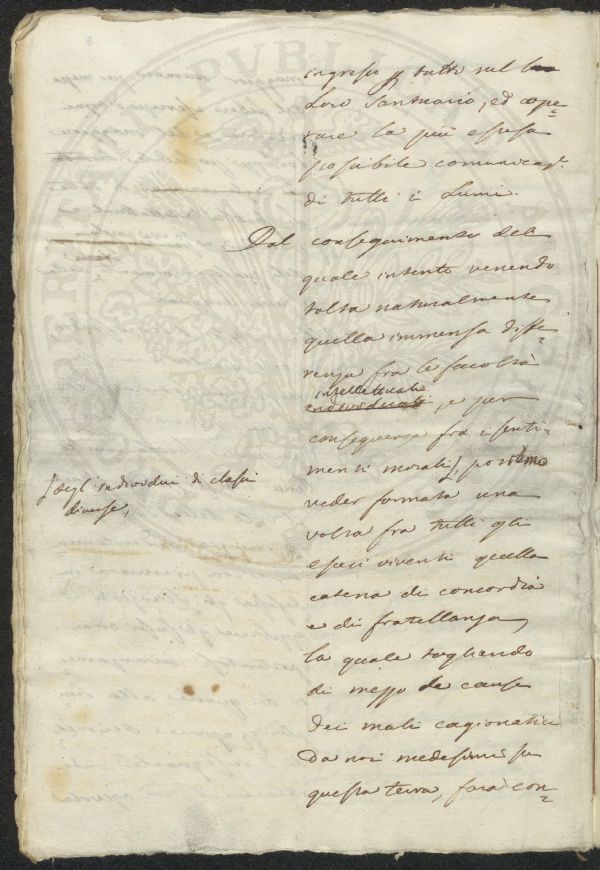 ingresso p. tutti nel
Loro Santuario, ed ope=
rare la più estesa
possibile comunicazˢ.
di tutti i Lumi.
Dal conseguimento del
quale intento venendo
tolta naturalmente
quella immensa diffe=
renza fra le facoltà
intellettuali
individuali, e per
conseguenza fra i senti=
menti morali ſ, possiamo
ſ degl'individui di classi
diverse,
veder formata una
volta fra tutti gli
esseri viventi quella
catena di concordia
e di fratellanza,
la quale togliendo
di mezzo le cause
dei mali cagionatici
da noi medesimi su
questa terra, farà con=